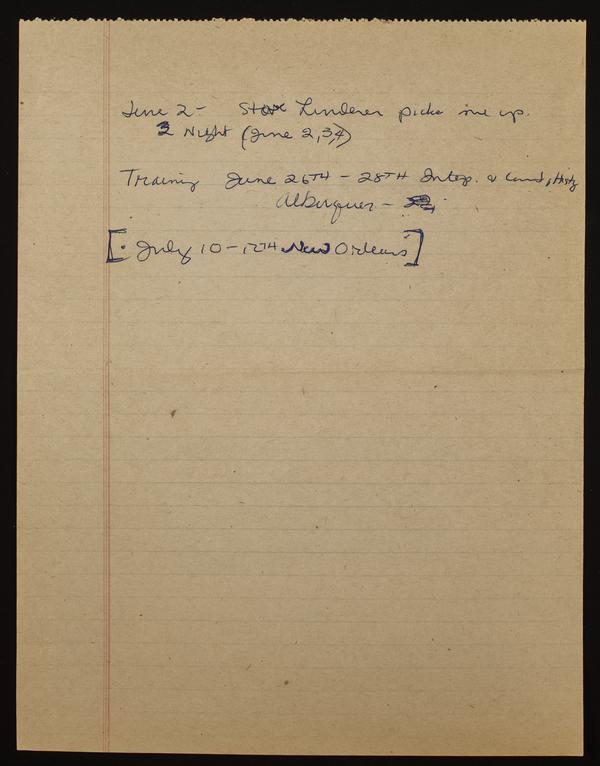 June 2 - Linderer picks me up.
3 Night (June 2,3,4)
Training June 26TH - 28TH Interp. & Land,
Alburquer -
[• July 10 - 12TH New Orleans]